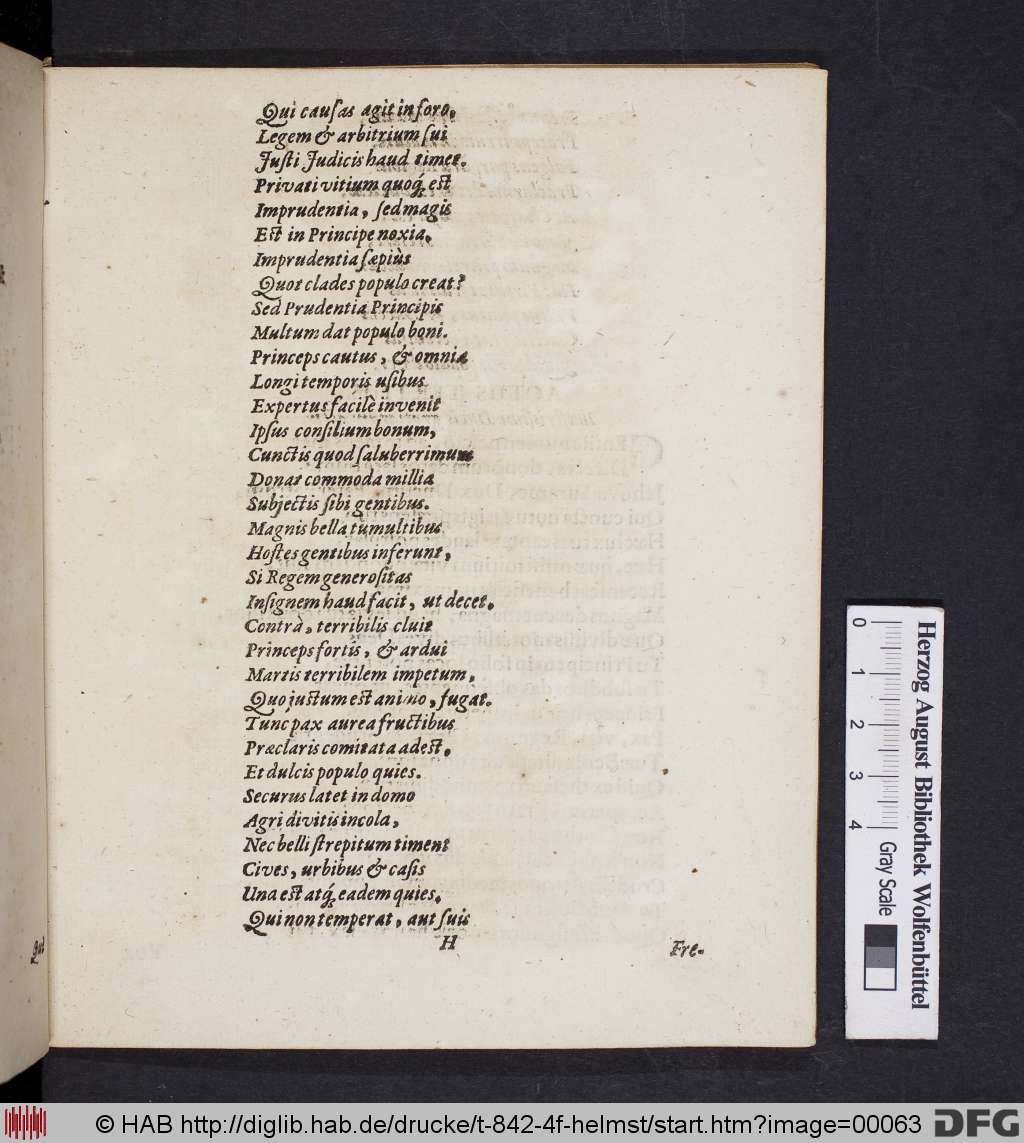 Qui cauſas agit in foro,
Legem & arbitrium ſui
Juſti Judicis haud timet.
Privati vitium quoq́; est
Imprudentia, ſed magis
Est in Principe noxia,
Imprudentia ſæpiùs
Quot clades populo creat?
Sed Prudentia Principis
Multum dat populo boni.
Princeps cautus, & omnia
Longi temporis uſibus
Expertus facilè invenit
Ipſus conſilium bonum,
Cunctis quod ſaluberrimum
Donat commoda millia
Subjectis ſibi gentibus.
Magnis bella tumultibus
Hoſtes gentibus inferunt,
Si Regem generoſitas
Inſignem haud facit, ut decet.
Contrà, terribilis cluit
Princeps fortis, & ardui
Martis terribilem impetum,
Quo justum est animo, fugat.
Tunc pax aurea fructibus
Præclaris comitata adest,
Et dulcis populo quies.
Securus latet in domo
Agri divitis incola,
Nec belli ſtrepitum timent
Cives, urbibus & caſis
Una est atq́; eadem quies.
Qui non temperat, aut ſuis
H
Fre-
Herzog August Bibliothek Wolfenbüttel
0 1 2 3 4
Gray Scale
© HAB http://diglib.hab.de/drucke/t-842-4f-helmst/start.htm?image=00063
DFG